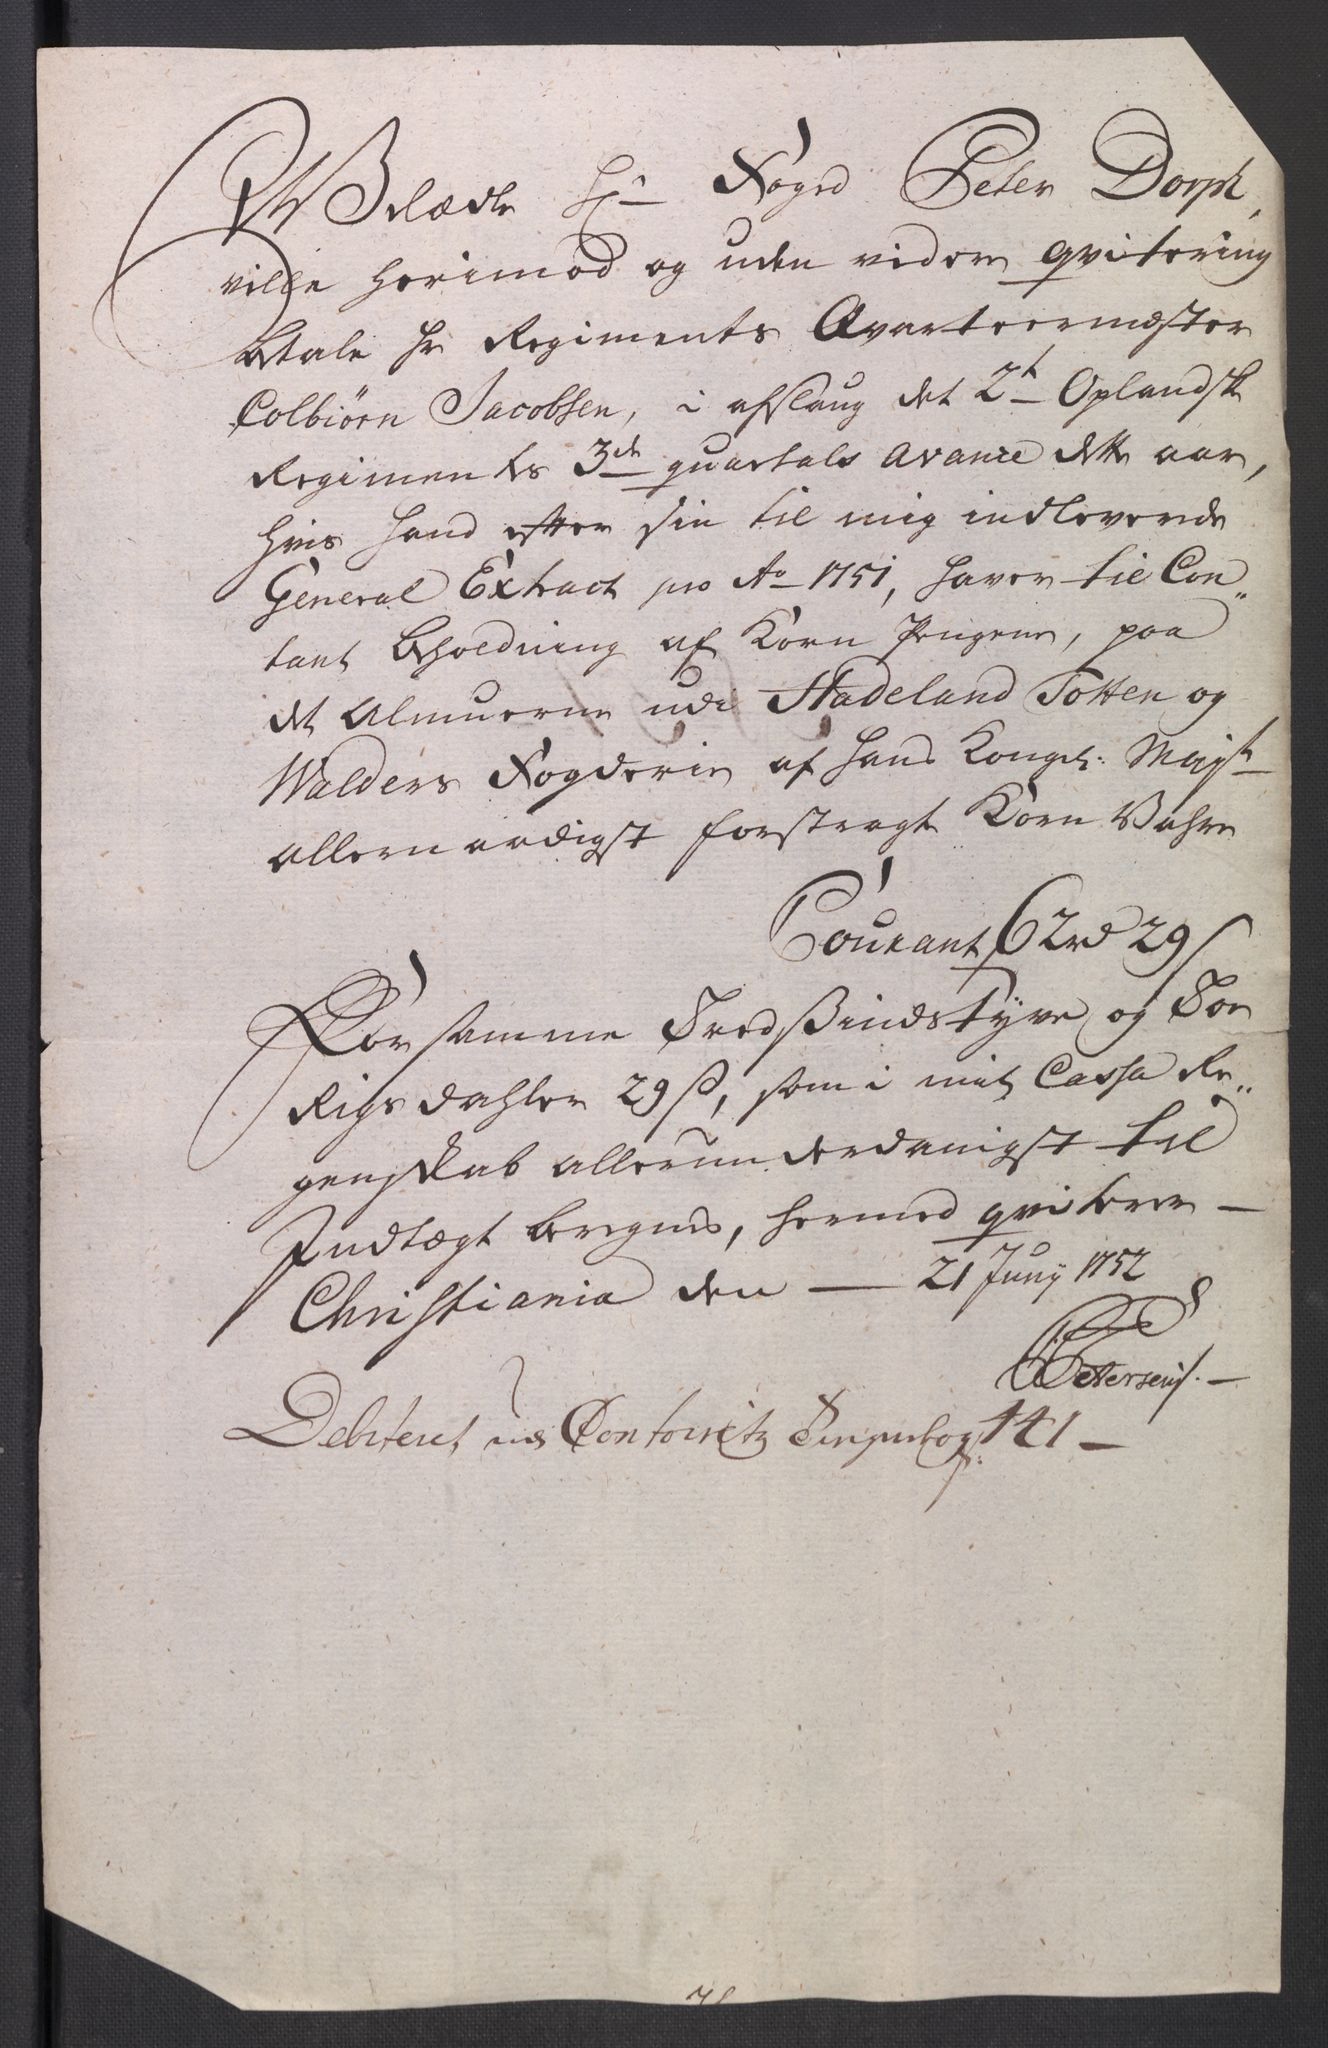 Welædle Hr. Foged Peter Dorph,
ville herimod og uden videre qvitering
betale Hr Regiments Qvarteermester
Colbiørn Jacobsen, i afslaug det 2t Oplandsk
Regiments 3de quartals Avance dette aar,
hvis hand efter sin til mig indleverede
General Extract pro Ao 1751, haver til Con„
tant Beholdning af Korn Pengene, paa
det Almuerne udi Hadeland Totten og
Walders Fogderie af Hans Kongel: Mayst
allernaadigst forstragte Korn Vahre
Courant 62rd 29s
For samme Tredsindstyve og Toe
Rigsdahler 29s, som i mit Cassa Re„
genskab allerunderdanigst til
Indtægt beregnes, hermed qviterer —
Christiania den — 21 Juny 1752
Petersen. —
Debiteret ved Contoirets Pengebog 141 —